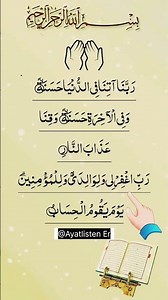 بِسْمِ اللهِ الرَّحْمٰنِ الرَّحِيْمِ
رَبَّنَا آتِنَا فِي الدُّنْيَا حَسَنَةً
وَفِي الْآخِرَةِ حَسَنَةً وَقِنَا
عَذَابَ النَّارِ
رَبِّ اغْفِرْ لِي وَلِوَالِدَيَّ وَلِلْمُؤْمِنِينَ
يَوْمَ يَقُومُ الْحِسَابُ
@Ayatlisten Er